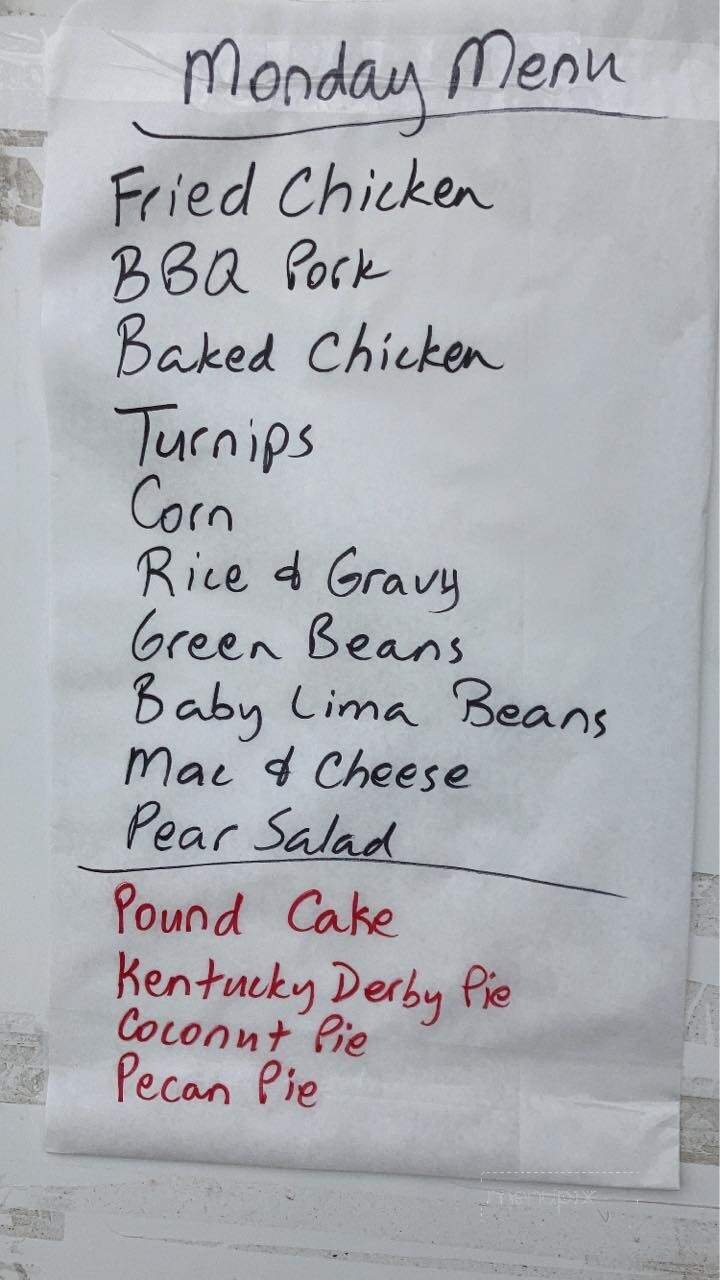 Monday Menu
Fried Chicken
BBQ Pork
Baked Chicken
Turnips
Corn
Rice & Gravy
Green Beans
Baby Lima Beans
Mac & Cheese
Pear Salad
Pound Cake
Kentucky Derby Pie
Coconut Pie
Pecan Pie